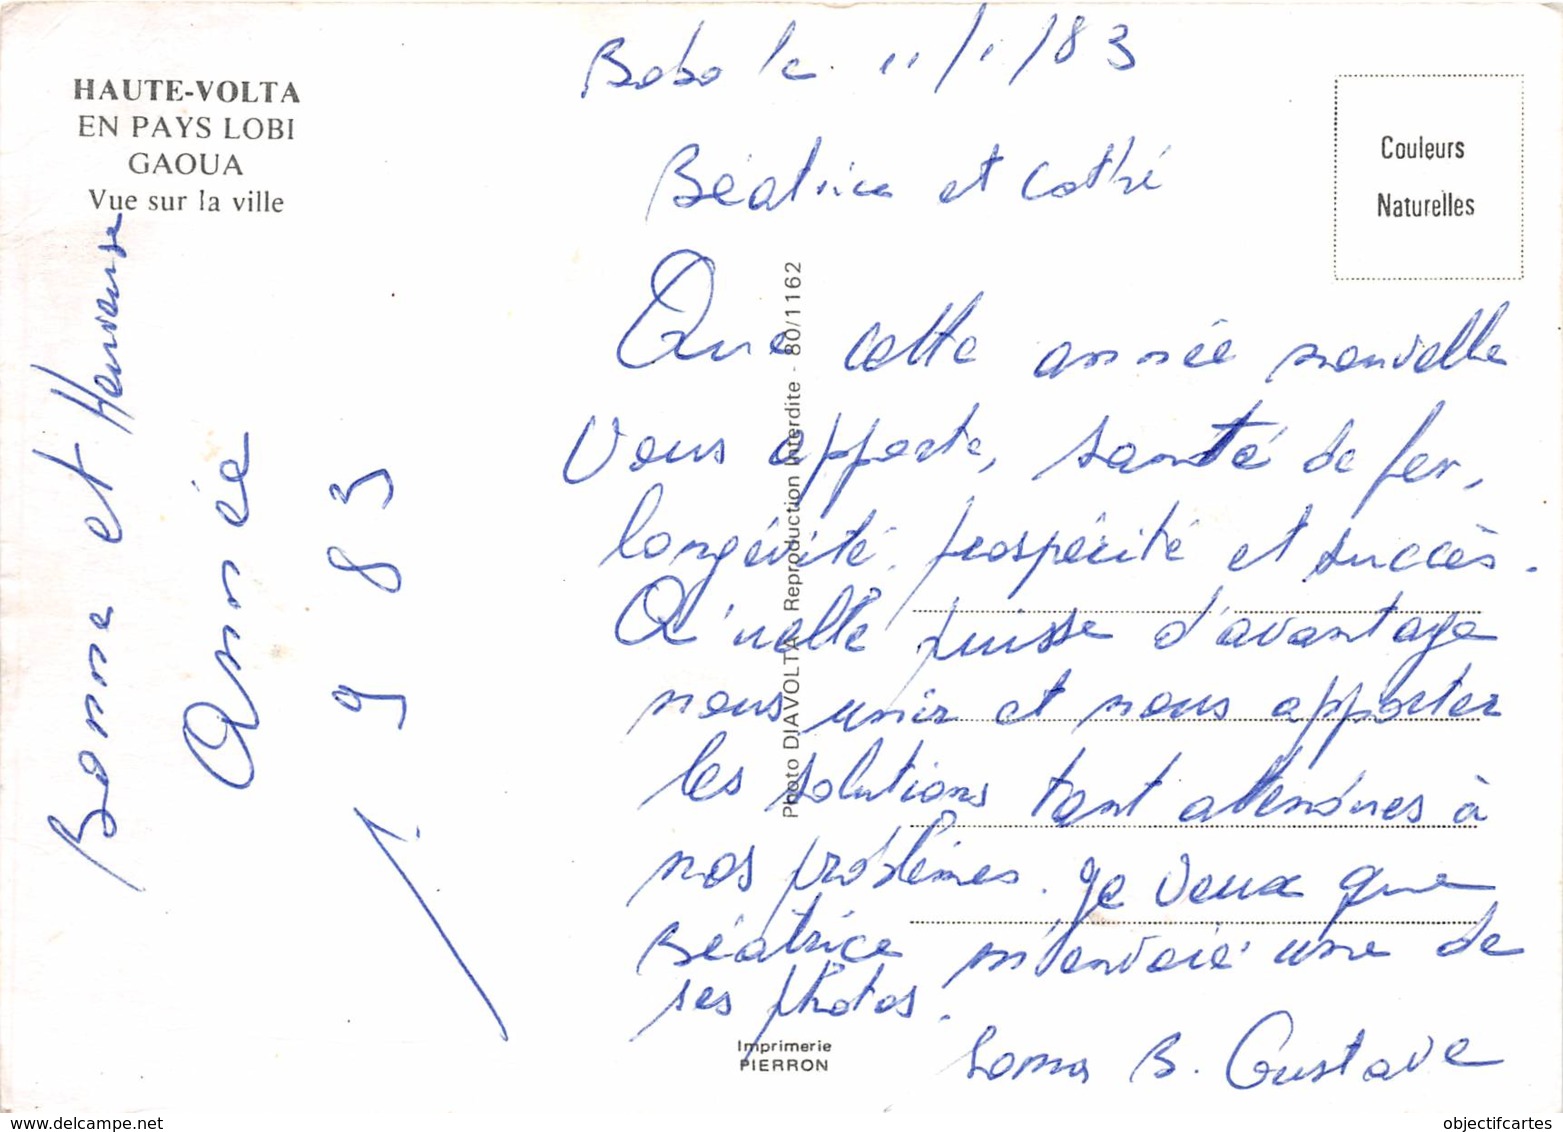 HAUTE-VOLTA
EN PAYS LOBI
GAOUA
Vue sur la ville
Bonne et Heureuse
Année
1983
Bobo le 11/1/83
Béatrice et Cathé
Que cette année nouvelle
Vous apporte, santé de fer,
longévité, prospérité et succès.
Qu'elle puisse d'avantage
nous unir et nous apporter
les solutions tant attendues à
nos problèmes. Je veux que
Béatrice m'envoie une de
ses photos.
Soma B. Gustave
Photo DJAVOLTA Reproduction Interdite - 80/1162
Imprimerie
PIERRON
Couleurs
Naturelles
www.delcampe.net
objectifcartes